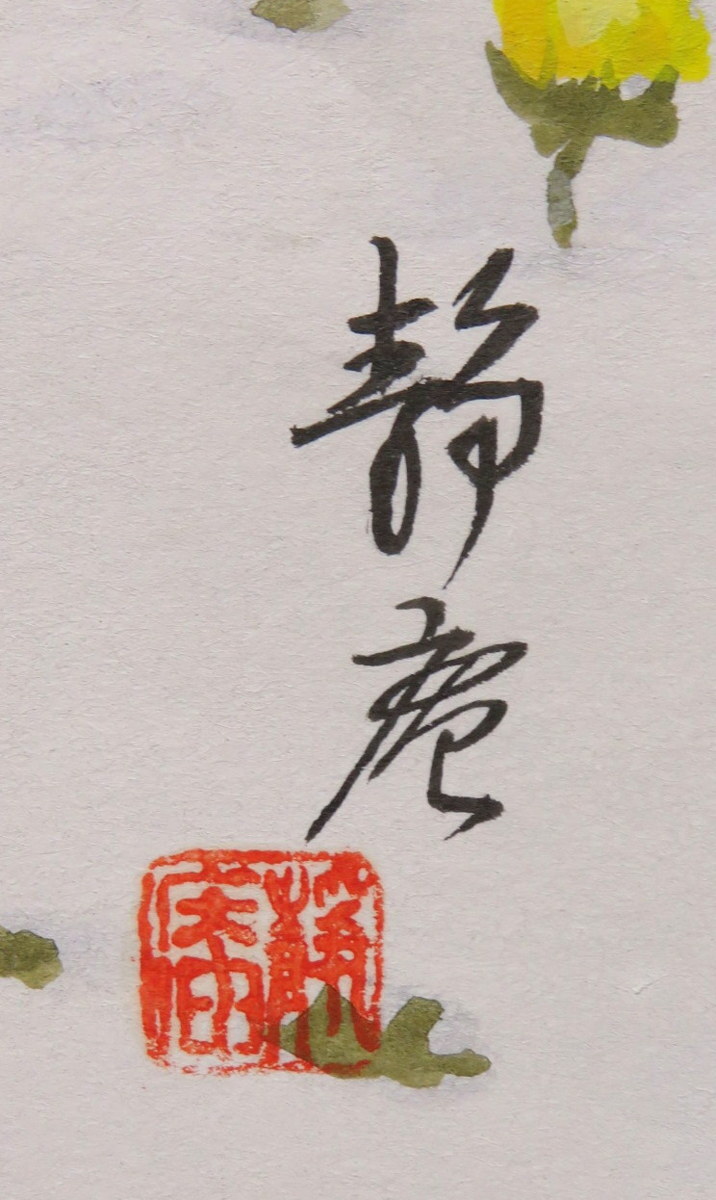 静庵
静庵